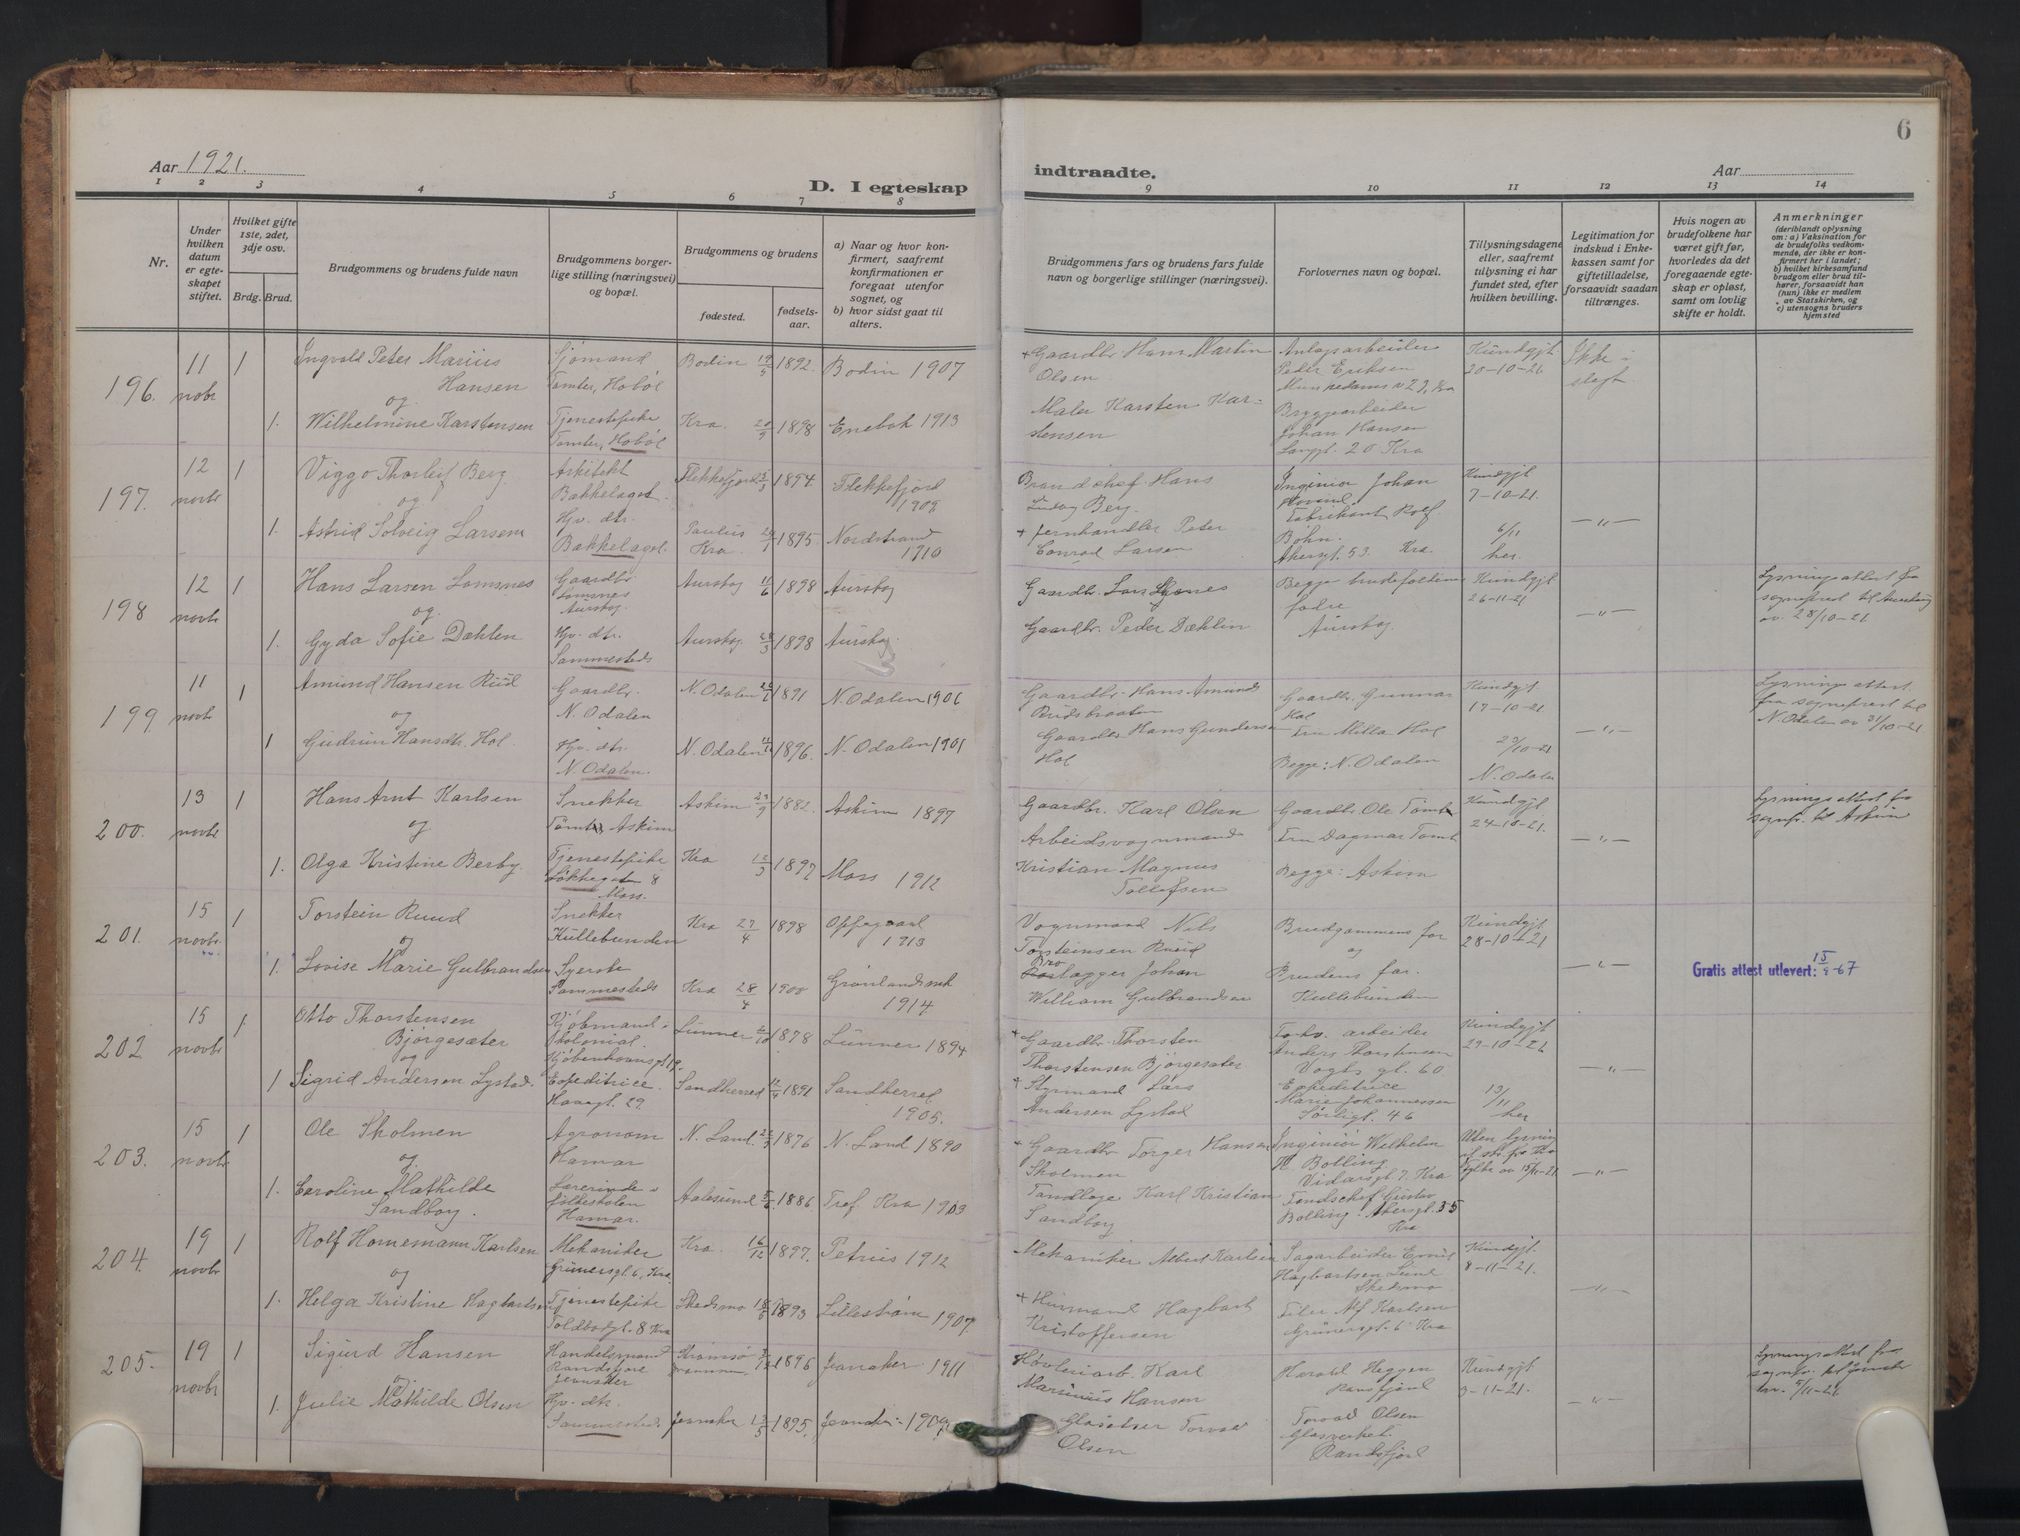 6
Aar 1921.
D. I egteskap
indtraadte.
Aar
1 2 3 4 5 6 7 8 9 10 11 12 13 14
Nr.
Under hvilken datum er egteskapet stiftet.
Hvilket gifte 1ste, 2det, 3dje osv.
Brdg. Brud.
Brudgommens og brudens fulde navn
Brudgommens borgerlige stilling (næringsvei) og bopæl.
Brudgommens og brudens
fødested.
fødselsaar.
a) Naar og hvor konfirmert, saafremt konfirmationen er foregaat utenfor sognet, og
b) hvor sidst gaat til alters.
Brudgommens fars og brudens fars fulde navn og borgerlige stillinger (næringsvei).
Forlovernes navn og bopæl.
Tillysningsdagene eller, saafremt tulysning ei har fundet sted, efter hvilken bevilling.
Legitimation for indskud i Enkekassen samt for giftetilladelse, forsaavidt saadan tiltrænges.
Hvis nogen av brudefolkene har været gift før, hvorledes da det foregaaende egteskap er opløst, samt om lovlig skifte er holdt.
Anmerkninger
(deriblandt oplysning om: a) Vaksination for de brudefolks vedkommende, der ikke er konfirmert her i landet;
b) hvilket kirkesamfund brudgom eller brud tilhører, forsaavidt han (hun) ikke er medlem av Statskirken, og
c) utensogns bruders hjemsted
196. 11 novbr 1 Ingvald Peter Marius Hansen Sjømand Tomter, Hobøl Bodin 19/5 1892. Bodin 1907 + Gaardbr Hans Martin Olsen Anlægsarbeider Peder Eriksen Munkedamsv 22, Kra Kundgjt. 20-10-21 Ikke i slegt.
og
1. Wilhelmine Karstensen Tjenestepike Tomter, Hobøl Kra. 20/9 1898 Enebak 1913 Maler Karsten Karstensen Bryggearbeider Johan Hansen Langgt. 20 Kra
197. 12 novbr 1 Viggo Thorleif Berg Arkitekt Bakkelaget. Flekkefjord 1894 Flekkefjord 1909 Brandchef Hans Ludvig Berg. Ingeniør Johan Kundgjt 7-10-21.
og
1. Astrid Solveig Larsen Hjv. dtr. Bakkelaget. Paulus Kra. 1895. Nordstrand 1910 + Jernhandler Peter Conrad Larsen Fabrikant Rolf Bøhn. Akersgt. 53. Kra. 6/11 her. —"—
198 12 novbr 1 Hans Larsen Lomsnes Gaardbr. Lomsnes Aurskog. Aurskog 11/6 1898 Aurskog Gaardbr. Lars Begge brudefolkenes fædre Aurskog Kundgjt 26-11-21 —"— Lysningsattest fra sogneprest til Aurskog av 28/10-21
og
1. Gyda Sofie Dæhlen Hjv. dtr. Sammesteds Aurskog 28/3 1898 Aurskog. Gaardbr. Peder Dæhlin
199 11 novbr 1 Amund Hansen Ruud Gaardbr. N. Odalen N. Odalen 1891 N. Odalen 1906 Gaardbr. Hans Amunds Rudsbraaten Gaardbr. Gunnar Hol Kundgjt 17-10-21. —"— Lysningsattest fra sogneprest til N. Odalen av 31/10-21
og
1 Gudrun Hansdtr. Hol. Hjv. dtr. N. Odalen. N. Odalen 1896. N. Odalen 1901 Gaardbr Hans Gundersen Hol Fru Milla Hol Begge: N. Odalen 23/10-21 N. Odalen
200. 13 novbr 1 Hans Arnt Karlsen Snekker Tomter Askim Askim 23/9 1882. Askim 1897 Gaardbr. Karl Olsen Gaardbr Ole Tomt Kundgjt 24-10-21. —"— Lysningsattest fra sognepr. til Askim
og
1. Olga Kristine Berby. Tjenestepike Løkkegaten 8 Moss. Kra 1897 Moss 1912 Arbeidsvognmand Kristian Magnus Tollefsen Fru Dagmar Tomt Begge: Askim
201. 15 novbr. 1 Torstein Ruud Snekker Kullebunden Kra 27/4 1898 Oppegaard 1913 Vognmand Nils Torsteinsen Ruud Brudgommens far Kundgjt 28-10-21
og
1. Lovise Marie Gulbrandsen Syerske Sammesteds Kra 28/4 1900 Grønlands mk 1914 Brolægger Johan William Gulbrandsen og Brudens far. Kullebunden —"— Gratis attest utlevert: 15/9-67
202 15 novbr 1. Otto Thorstensen Bjørgesæter Kjøbmand i kolonial. Kjøbenhavnsgt 19. Lunner 1878 Lunner 1894 + Gaardbr. Thorsten Thorstensen Bjørgesæter arbeider Anders Thorstensen Vogts gt. 60. Kundgjt 29-10-21
og
1 Sigrid Andersen Lystad. Expeditrice. 29. Sandherred 1891 Sandherred 1905. + Styrmand Lars Andersen Lystad Expeditrice Marie Johannessen Sørligt. 46 13/11 her —"—
203. 15 novbr 1 Ole Skolmen Agronom Hamar N. Land. 1876 N. Land 1890 + Gaardbr Torger Hansen Skolmen Ingeniør Wilhelm Bolling Vidarsgt 7. Kra Uten lysning 15/11-21 —"—
og
1. Caroline Mathilde Sandborg. Lærerinde i folkeskolen Hamar. Aalesund 1886 Tref. Kra 1903 Tandlæge Karl Kristian Sandborg Bolling. Akersgt. 55 Kra
204. 19 novbr 1 Rolf Hornemann Karlsen Mekaniker Grünersgt. 6, Kra. Kra. 16/12 1897. Petrus 1912 Mekaniker Albert Karlsen Sagarbeider Emil Hagbartsen Lund Skedsmo Kundgjt. 8-11-21.
og
1. Helga Kristine Hagbartsen Tjenestepike Toldbodgt. 8 Kra Skedsmo 1893 Lillestrøm 1907. + Husmand Hagbart Kristoffersen Filer Alf Karlsen Grünersgt. 6 Kra —"—
205. 19 novbr 1 Sigurd Hansen Handelsmand Randsfjord Jevnaker 1896 Jevnaker 1911 Høvleriarb. Karl Marinius Hansen Harald Heggen Randsfjord Kundgjt. 3-11-21. —"— Lysningsattest fra sognepr. til Jevnaker av. 5/11-21
og
1. Julie Mathilde Olsen Hjv. dtr. Sammesteds Jevnaker 1895. Jevnaker Glassliper Torvald Olsen Torvald Olsen Glasverket. Randsfjord